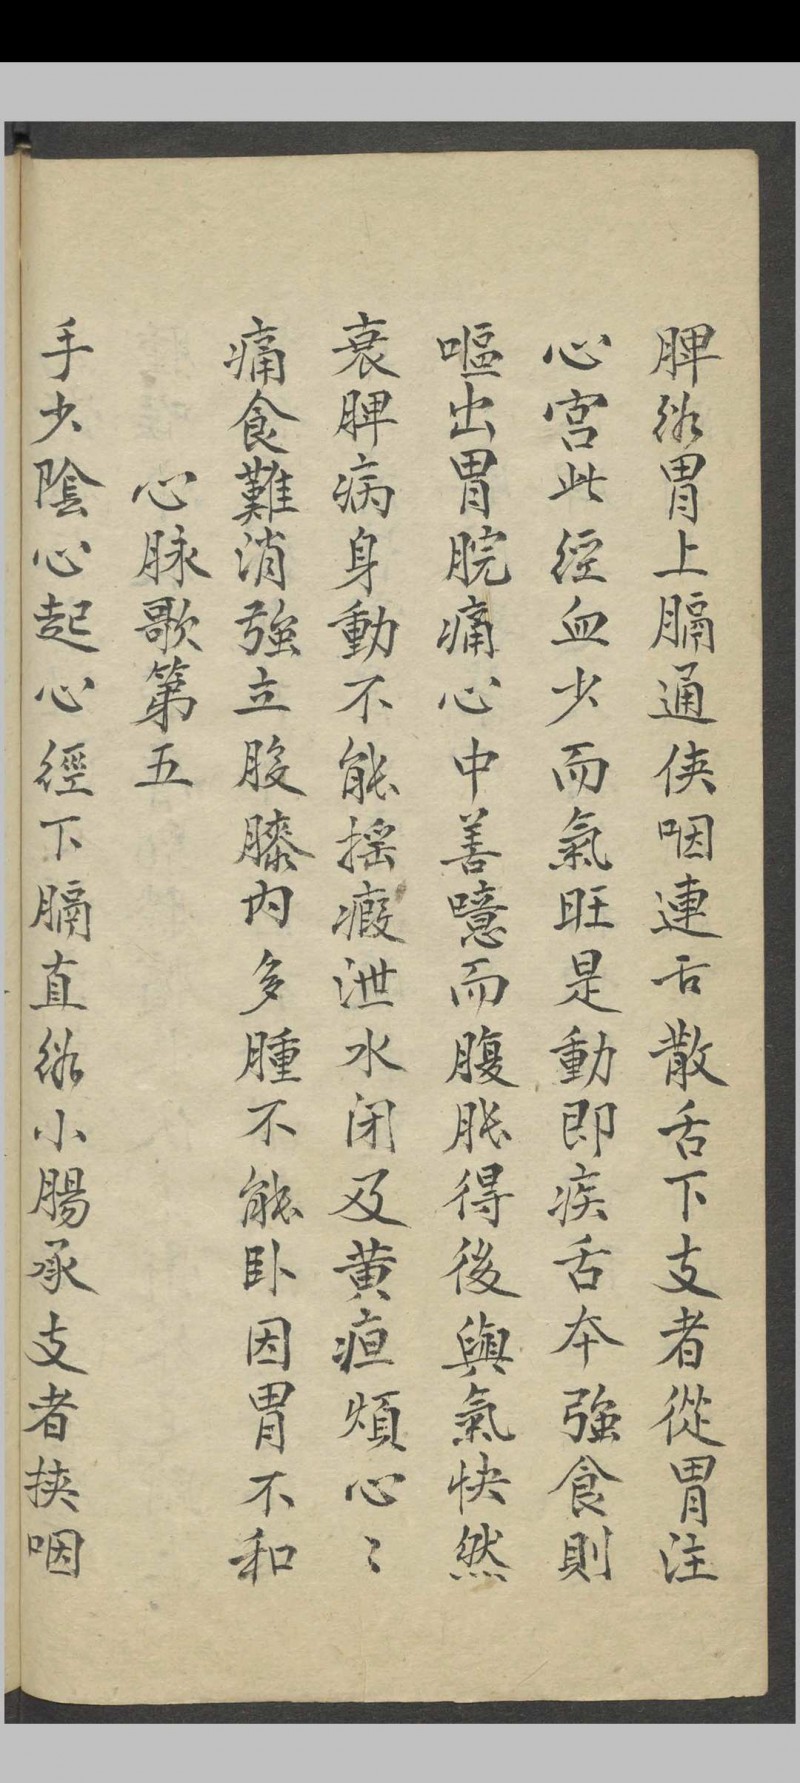 脾絡胃上膈通俠咽連舌散舌下支者從胃注
心宮此經血少而氣旺是動即疾舌本強食則
嘔出胃脘痛心中善噫而腹脹得後與氣快然
衰脾病身動不能搖瘕泄水闭及黄疸煩心〻
痛食難消強立股膝内多腫不能卧因胃不和
心脉歌第五
手少陰心起心經下膈直絡小腸承支者挾咽